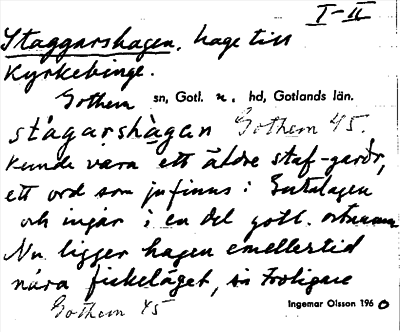 I-II
Staggarshagen, hage till
Kyrkebinge.
Gothem sn, Gotl. n. hd, Gotlands län.
stågarshàgan Gothem 45.
kunde vara ett äldre staf-garðr,
ett ord som ju finns i Gutalagen
och ingår i en del gotl. ortnamn
Nu ligger hagen emellertid
nära fiskeläget, så troligare
Gothem 45
Ingemar Olsson 1960